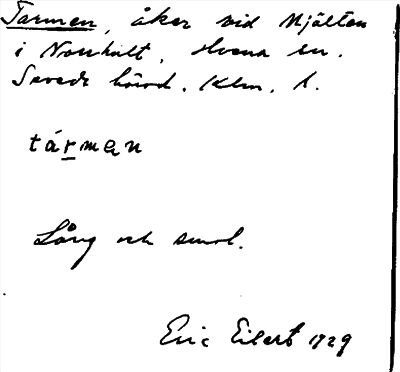 Tarmen, åker vid Mjölten
i Norrhult, Hvena sn.
Sevede härad, Klm. l.
tármen
Lång och smal.
Eric Eilert 1929